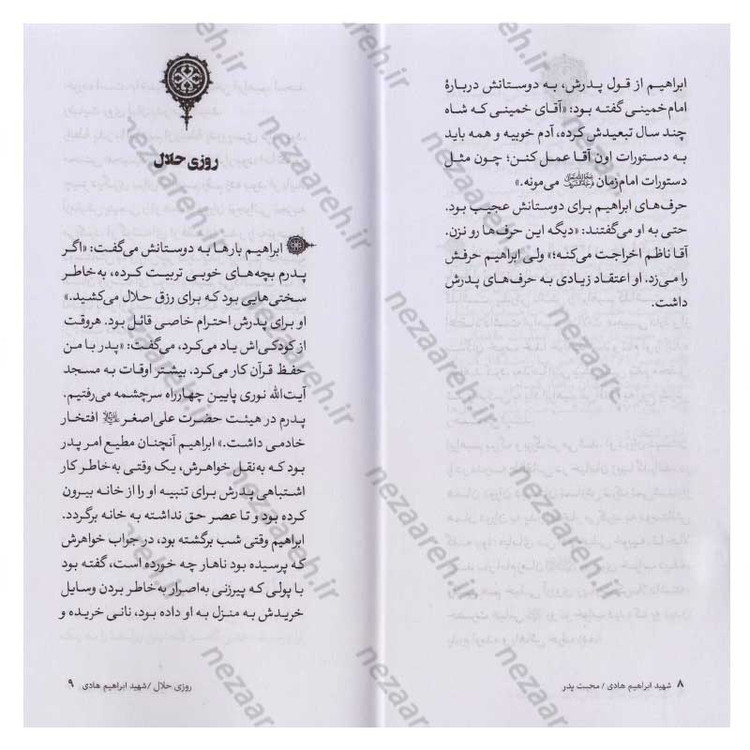 ابراهیم از قول پدرش، به دوستانش دربارهٔ
امام خمینی گفته بود: «آقای خمینی که شاه
چند سال تبعیدش کرده، آدم خوبیه و همه باید
به دستورات اون آقا عمل کنن؛ چون مثل
دستورات امام زمان می‌مونه.»
حرف‌های ابراهیم برای دوستانش عجیب بود.
حتی به او می‌گفتند: «دیگه این حرف‌ها رو نزن.
آقا ناظم اخراجت می‌کنه؛» ولی ابراهیم حرفش
را می‌زد. او اعتقاد زیادی به حرف‌های پدرش
داشت.
۸ شهید ابراهیم هادی / محبت پدر
روزی حلال
ابراهیم بارها به دوستانش می‌گفت: «اگر
پدرم بچه‌های خوبی تربیت کرده، به‌خاطر
سختی‌هایی بود که برای رزق حلال می‌کشید.»
او برای پدرش احترام خاصی قائل بود. هروقت
از کودکی‌اش یاد می‌کرد، می‌گفت: «پدر با من
حفظ قرآن کار می‌کرد. بیشتر اوقات به مسجد
آیت‌الله نوری پایین چهارراه سرچشمه می‌رفتیم.
پدرم در هیئت حضرت علی‌اصغر افتخار
خادمی داشت.» ابراهیم آنچنان مطیع امر پدر
بود که به‌نقل خواهرش، یک وقتی به‌خاطر کار
اشتباهی پدرش برای تنبیه او را از خانه بیرون
کرده بود و تا عصر حق نداشته به خانه برگردد.
ابراهیم وقتی شب برگشته بود، در جواب خواهرش
که پرسیده بود ناهار چه خورده است، گفته بود
با پولی که پیرزنی به‌اصرار به‌خاطر بردن وسایل
خریدش به منزل به او داده بود، نانی خریده و
روزی حلال / شهید ابراهیم هادی ۹
nezaareh.ir
nezaareh.ir
nezaareh.ir
nezaareh.ir
nezaareh.ir
nezaareh.ir